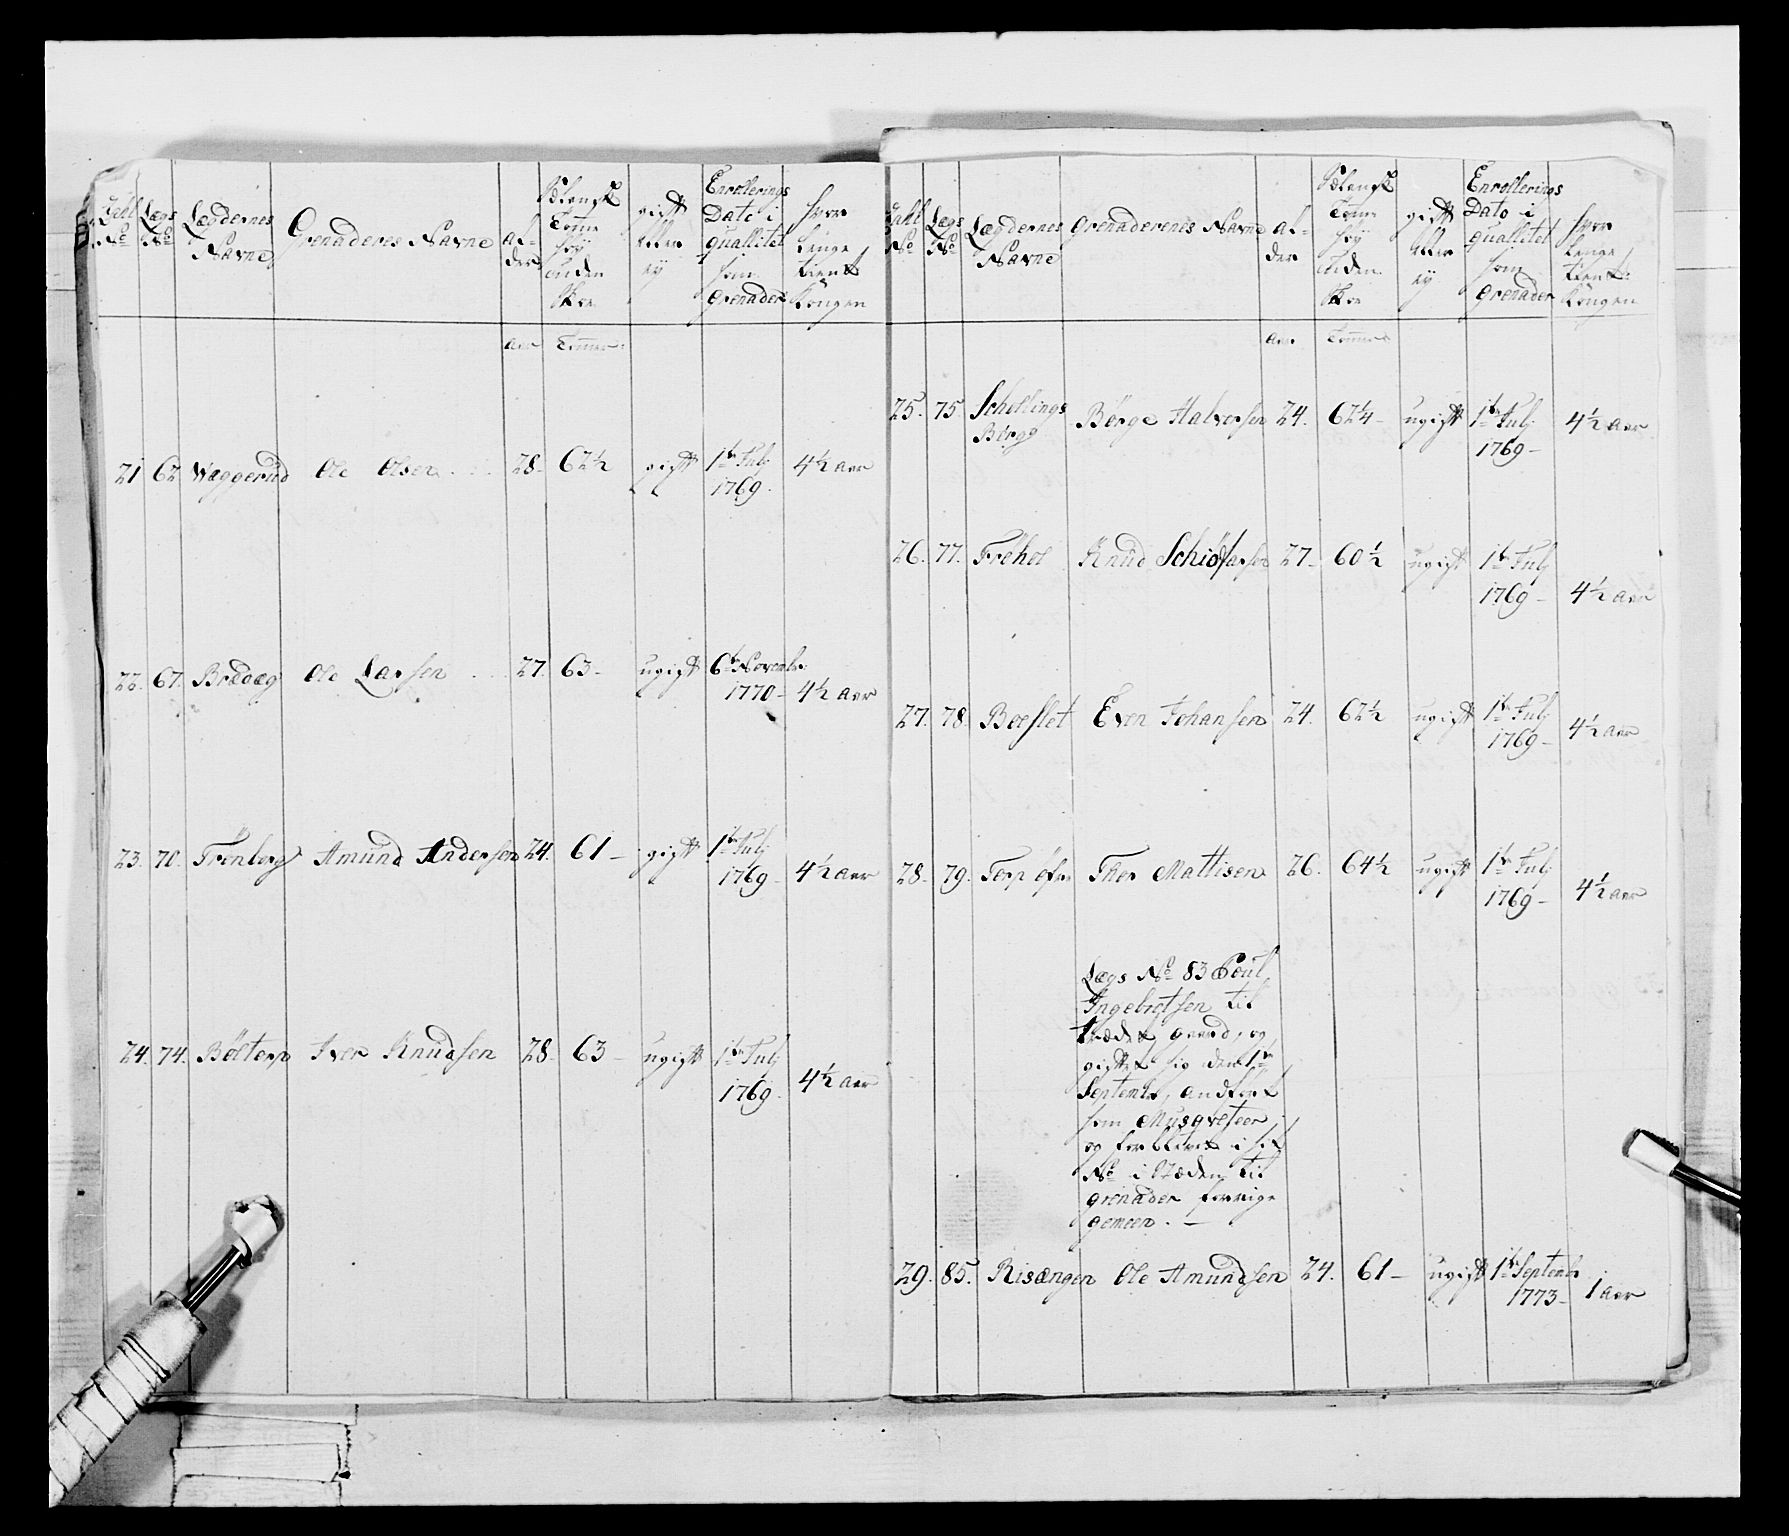 Tahl No
Lægs No
Lægdernes Navne
Grenaderes Navne
al-
der
Sælansk
Tomme
høy
uden
Skoe
gift
eller
ey
Enrollerings
Dato i
quallitet
som
Grenader
hvor
længe
tient
Kongen
aar Tommer
21 62 Wæggerud Ole Olsen 28 62½ gift 1te Julj
1769 4½ aar
22. 67. Brædæg Ole Larsen 27. 63 ugift 6te Novembr:
1770 4½ aar
23. 70. Trönborg Amund Andersen 24. 61 gift 1te Julj
1769 4½ aar
24. 74. Böeterp Iver Knudsen 28 63 ugift 1te Julj
1769 4½ aar
Tahl No
Lægs No
Lægdernes Navne
Grenaderenes Navne
al-
der
Sælansk
Tomme
høy
uden
Skoe
gift
eller
ey
Enrollerings
Dato i
quallitet
som
Grenader
hvor
længe
tient
Kongen
aar Tommer
25. 75. Schollings
Berg Börge Halvorsen 24. 62¼ ugift 1te Julj
1769 4½ aar
26. 77. Fröhol Knud 27 60½ ugift 1te Julj
1769 4½ aar
27. 78. Boeslet Even Johansen 24. 62½ ugift 1te Julj
1769 4½ aar
28. 79. Torp öfre Thor Mattisen 26. 64½ ugift 1te Julj
1769 4½ aar
Lægs No 83 Poul
Ingebretsen til
trædet gaard, og
giftet sig den 1te
Septembr, andført
som Musqveteer
og forbliver i sit
No i Stæden til
grenader forrige
gemeen. —
29. 85. Risængen Ole Amundsen 24. 61 ugift 1te Septembr
1773 1 aar